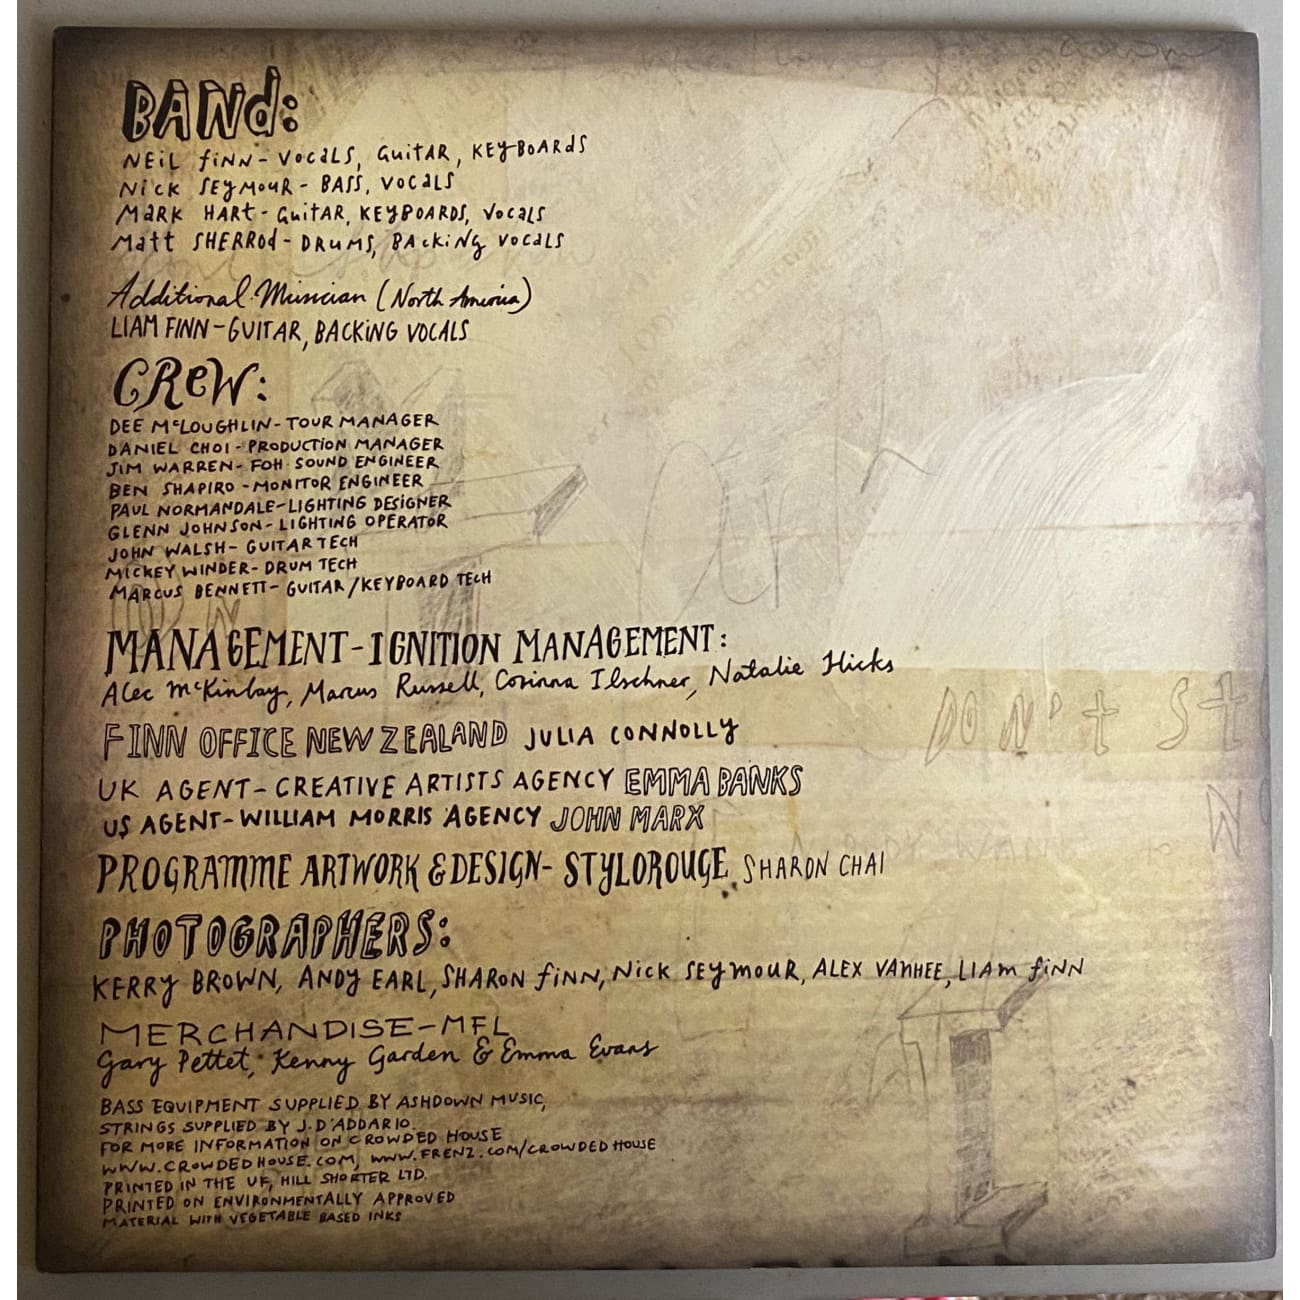 BANd:
NEiL fiNN - VOCALS, GuitAR, KEYBOARdS
Nick SEYMOUR - BASS, VOCALS
MARK HARt - GuitAR, KEYBOARDS, VOCALS
Matt SHERROd - DRUMS, BAckiNg VOCALS
Additional Musician (North America)
LIAM FINN - GUITAR, BACKiNG VOCALS
CReW:
DEE McLOUGHLIN - TOUR MANAGER
DANIEL CHOI - PRODUCTION MANAGER
JIM WARREN - FOH SOUND ENGINEER
BEN SHAPIRO - MONITOR ENGINEER
PAUL NORMANDALE - LIGHTING DESIGNER
GLENN JOHNSON - LIGHTING OPERATOR
JOHN WALSH - GUITAR TECH
MICKEY WINDER - DRUM TECH
MARCUS BENNETT - GUITAR/KEYBOARD TECH
MANAGEMENT - IGNITION MANAGEMENT:
Alec McKinlay, Marcus Russell, Corinna Ilschner, Natalie Hicks
FINN OFFICE NEW ZEALAND JULIA CONNOLLY
UK AGENT - CREATIVE ARTISTS AGENCY EMMA BANKS
US AGENT - WILLIAM MORRIS AGENCY JOHN MARX
DON't St
PROGRAMME ARTWORK & DESIGN - STYLOROUGE SHARON CHAI
PHOTOGRAPHERS:
KERRY BROWN, ANDY EARL, SHARON fiNN, Nick SEYMOUR, ALEX VANHEE, LIAM fiNN
MERCHANDISE - MFL
Gary Pettet, Kenny Garden & Emma Evans
BASS EQUIPMENT SUPPLIED BY ASHDOWN MUSIC,
STRINGS SUPPLIED BY J. D'ADDARIO.
FOR MORE INFORMATION ON CROWDED HOUSE
WWW.CROWDEDHOUSE.COM, WWW.FRENZ.COM/CROWDEDHOUSE
PRINTED IN THE UK, HILL SHORTER LTD.
PRINTED ON ENVIRONMENTALLY APPROVED
MATERIAL WITH VEGETABLE BASED INKS